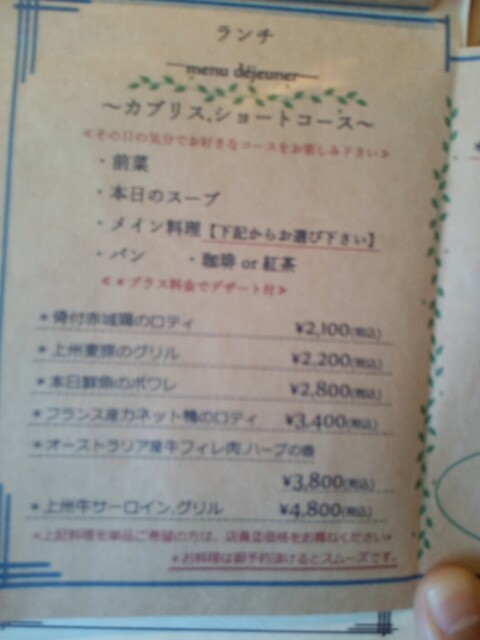 ランチ
menu déjeuner
～カプリス.ショートコース～
≪その日の気分でお好きなコースをお楽しみ下さい≫
・前菜
・本日のスープ
・メイン料理【下記からお選び下さい】
・パン ・珈琲 or 紅茶
≪＊プラス料金でデザート付≫
＊骨付赤城鶏のロティ ¥2,100(税込)
＊上州麦豚のグリル ¥2,200(税込)
＊本日鮮魚のポワレ ¥2,800(税込)
＊フランス産カネット鴨のロティ ¥3,400(税込)
＊オーストラリア産牛フィレ肉.ハーブの香
¥3,800(税込)
＊上州牛サーロイン.グリル ¥4,800(税込)
＊上記料理を単品ご希望の方は、店員迄価格をお尋ねください＊
＊お料理は御予約頂けるとスムーズです。